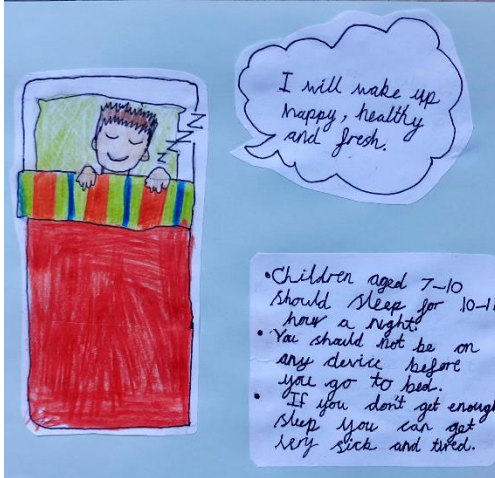 I will wake up
happy, healthy
and fresh.
z z z
• Children aged 7-10
should sleep for 10-11
hour a night.
• You should not be on
any device before
you go to bed.
• If you don't get enough
sleep you can get
very sick and tired.